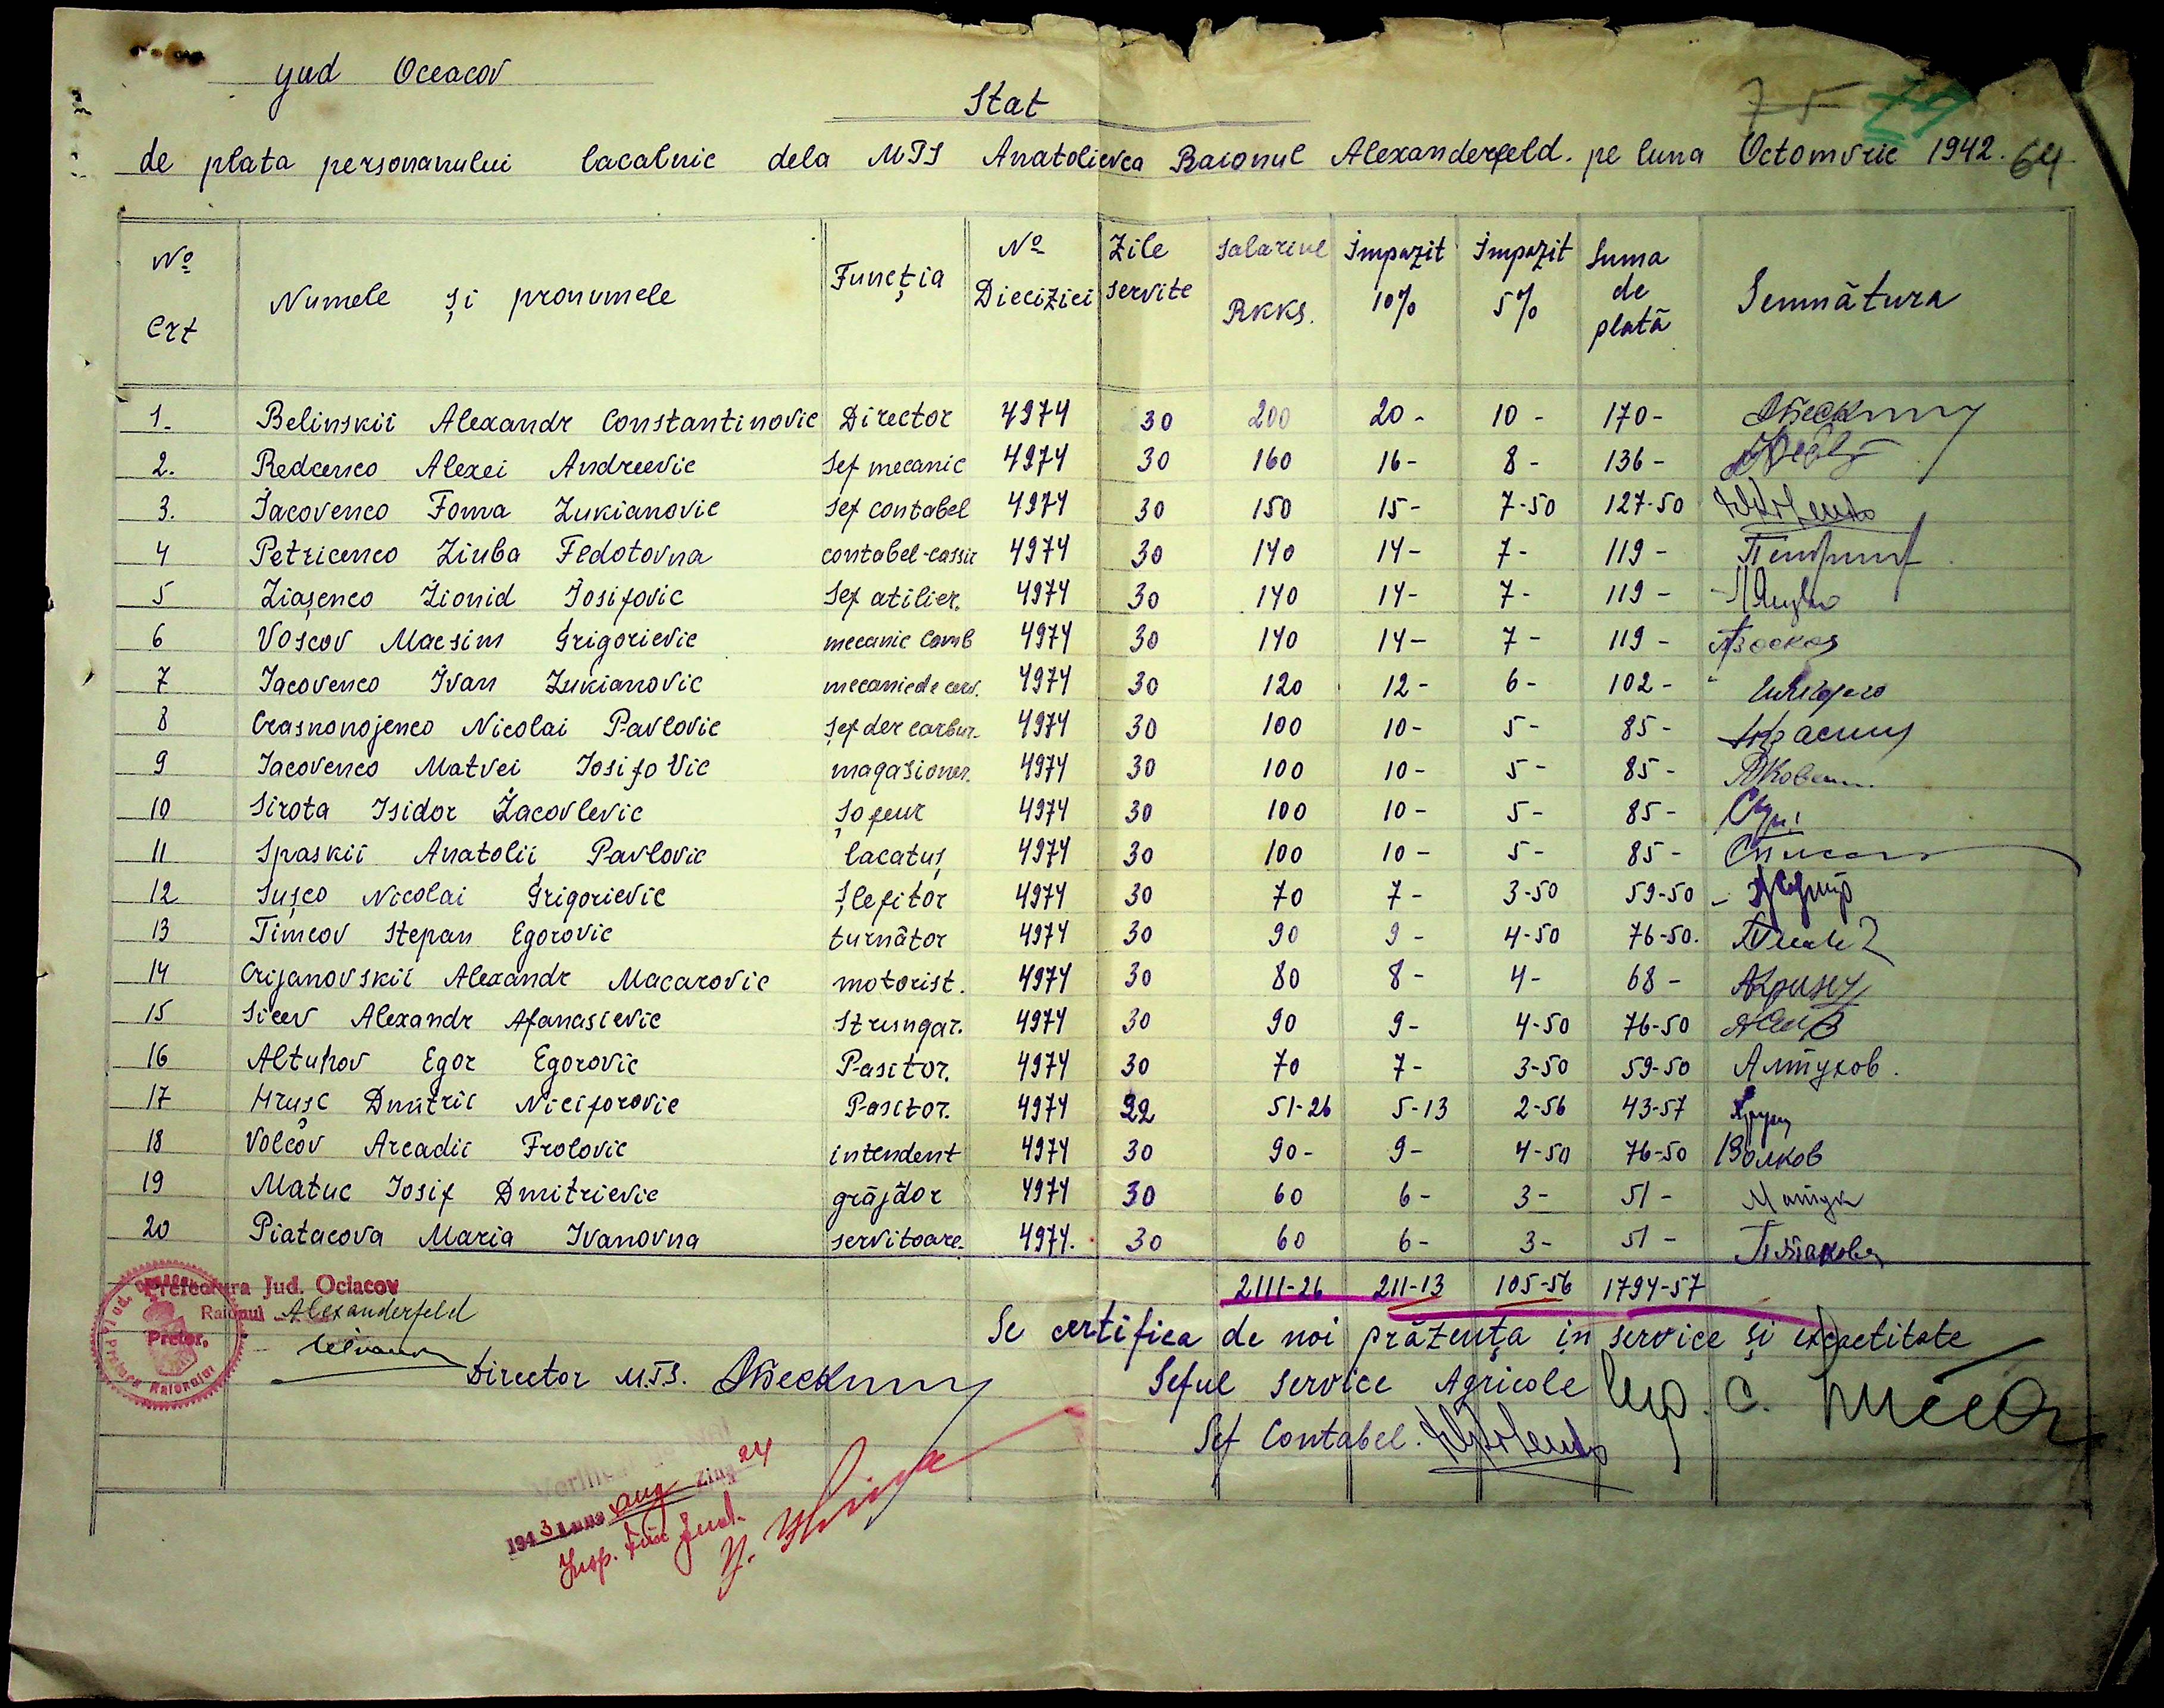 jud Oceacov
Stat
75 79
de plata personanului lacalnic dela MTS Anatolievca Raionul Alexanderfeld. pe luna Octomvrie 1942. 64
№ Crt Numele și pronumele Funcția № Diecizici Zile servite Salariul RKKS. Impozit 10% Impozit 5% Suma de plată Semnătura
1. Belinskii Alexandr Constantinovic Director 4974 30 200 20- 10- 170-
2. Redcenco Alexei Andreevic Sef mecanic 4974 30 160 16- 8- 136-
3. Iacovenco Foma Lukianovic Sef contabel 4974 30 150 15- 7-50 127-50
4 Petricenco Liuba Fedotovna contabel-cassir 4974 30 140 14- 7- 119-
5 Liașenco Lionid Iosifovic Sef atilier. 4974 30 140 14- 7- 119-
6 Voscov Macsim Grigorievic mecanic Comb 4974 30 140 14- 7- 119-
7 Iacovenco Ivan Lukianovic mecanic de 4974 30 120 12- 6- 102-
8 Crasnonojenco Nicolai Pavlovic Șef der carbur. 4974 30 100 10- 5- 85-
9 Iacovenco Matvei Iosifovic magasioner. 4974 30 100 10- 5- 85-
10 Sirota Isidor Iacovlevic Șofeur 4974 30 100 10- 5- 85-
11 Spaskii Anatolii Pavlovic lacatuș 4974 30 100 10- 5- 85-
12 Sușco Nicolai Grigorievic Șlefitor 4974 30 70 7- 3-50 59-50
13 Timcov Stepan Egorovic turnător 4974 30 90 9- 4-50 76-50.
14 Crijanovskii Alexandr Macarovic motorist. 4974 30 80 8- 4- 68-
15 Sicev Alexandr Afanasievic Strungar. 4974 30 90 9- 4-50 76-50
16 Altuhov Egor Egorovic Pasitor. 4974 30 70 7- 3-50 59-50 Алтухов.
17 Hrușc Dmitrii Niciforovic Pasitor. 4974 22 51-26 5-13 2-56 43-57
18 Volcov Arcadii Frolovic intendent 4974 30 90- 9- 4-50 76-50 Волков
19 Matuc Iosif Dmitrievic grăjdor 4974 30 60 6- 3- 51- Матук
20 Piatacova Maria Ivanovna servitoare. 4974. 30 60 6- 3- 51- Пятакова
2111-26 211-13 105-56 1794-57
Prefectura Jud. Ociacov
Raionul Alexanderfeld
Pretor,
Se certifica de noi prăzența in service și exactitate
Director M.T.S.
Seful service Agricole
Sef Contabel.
1943 Luna aug Ziua 24
Insp. Fin Jud.